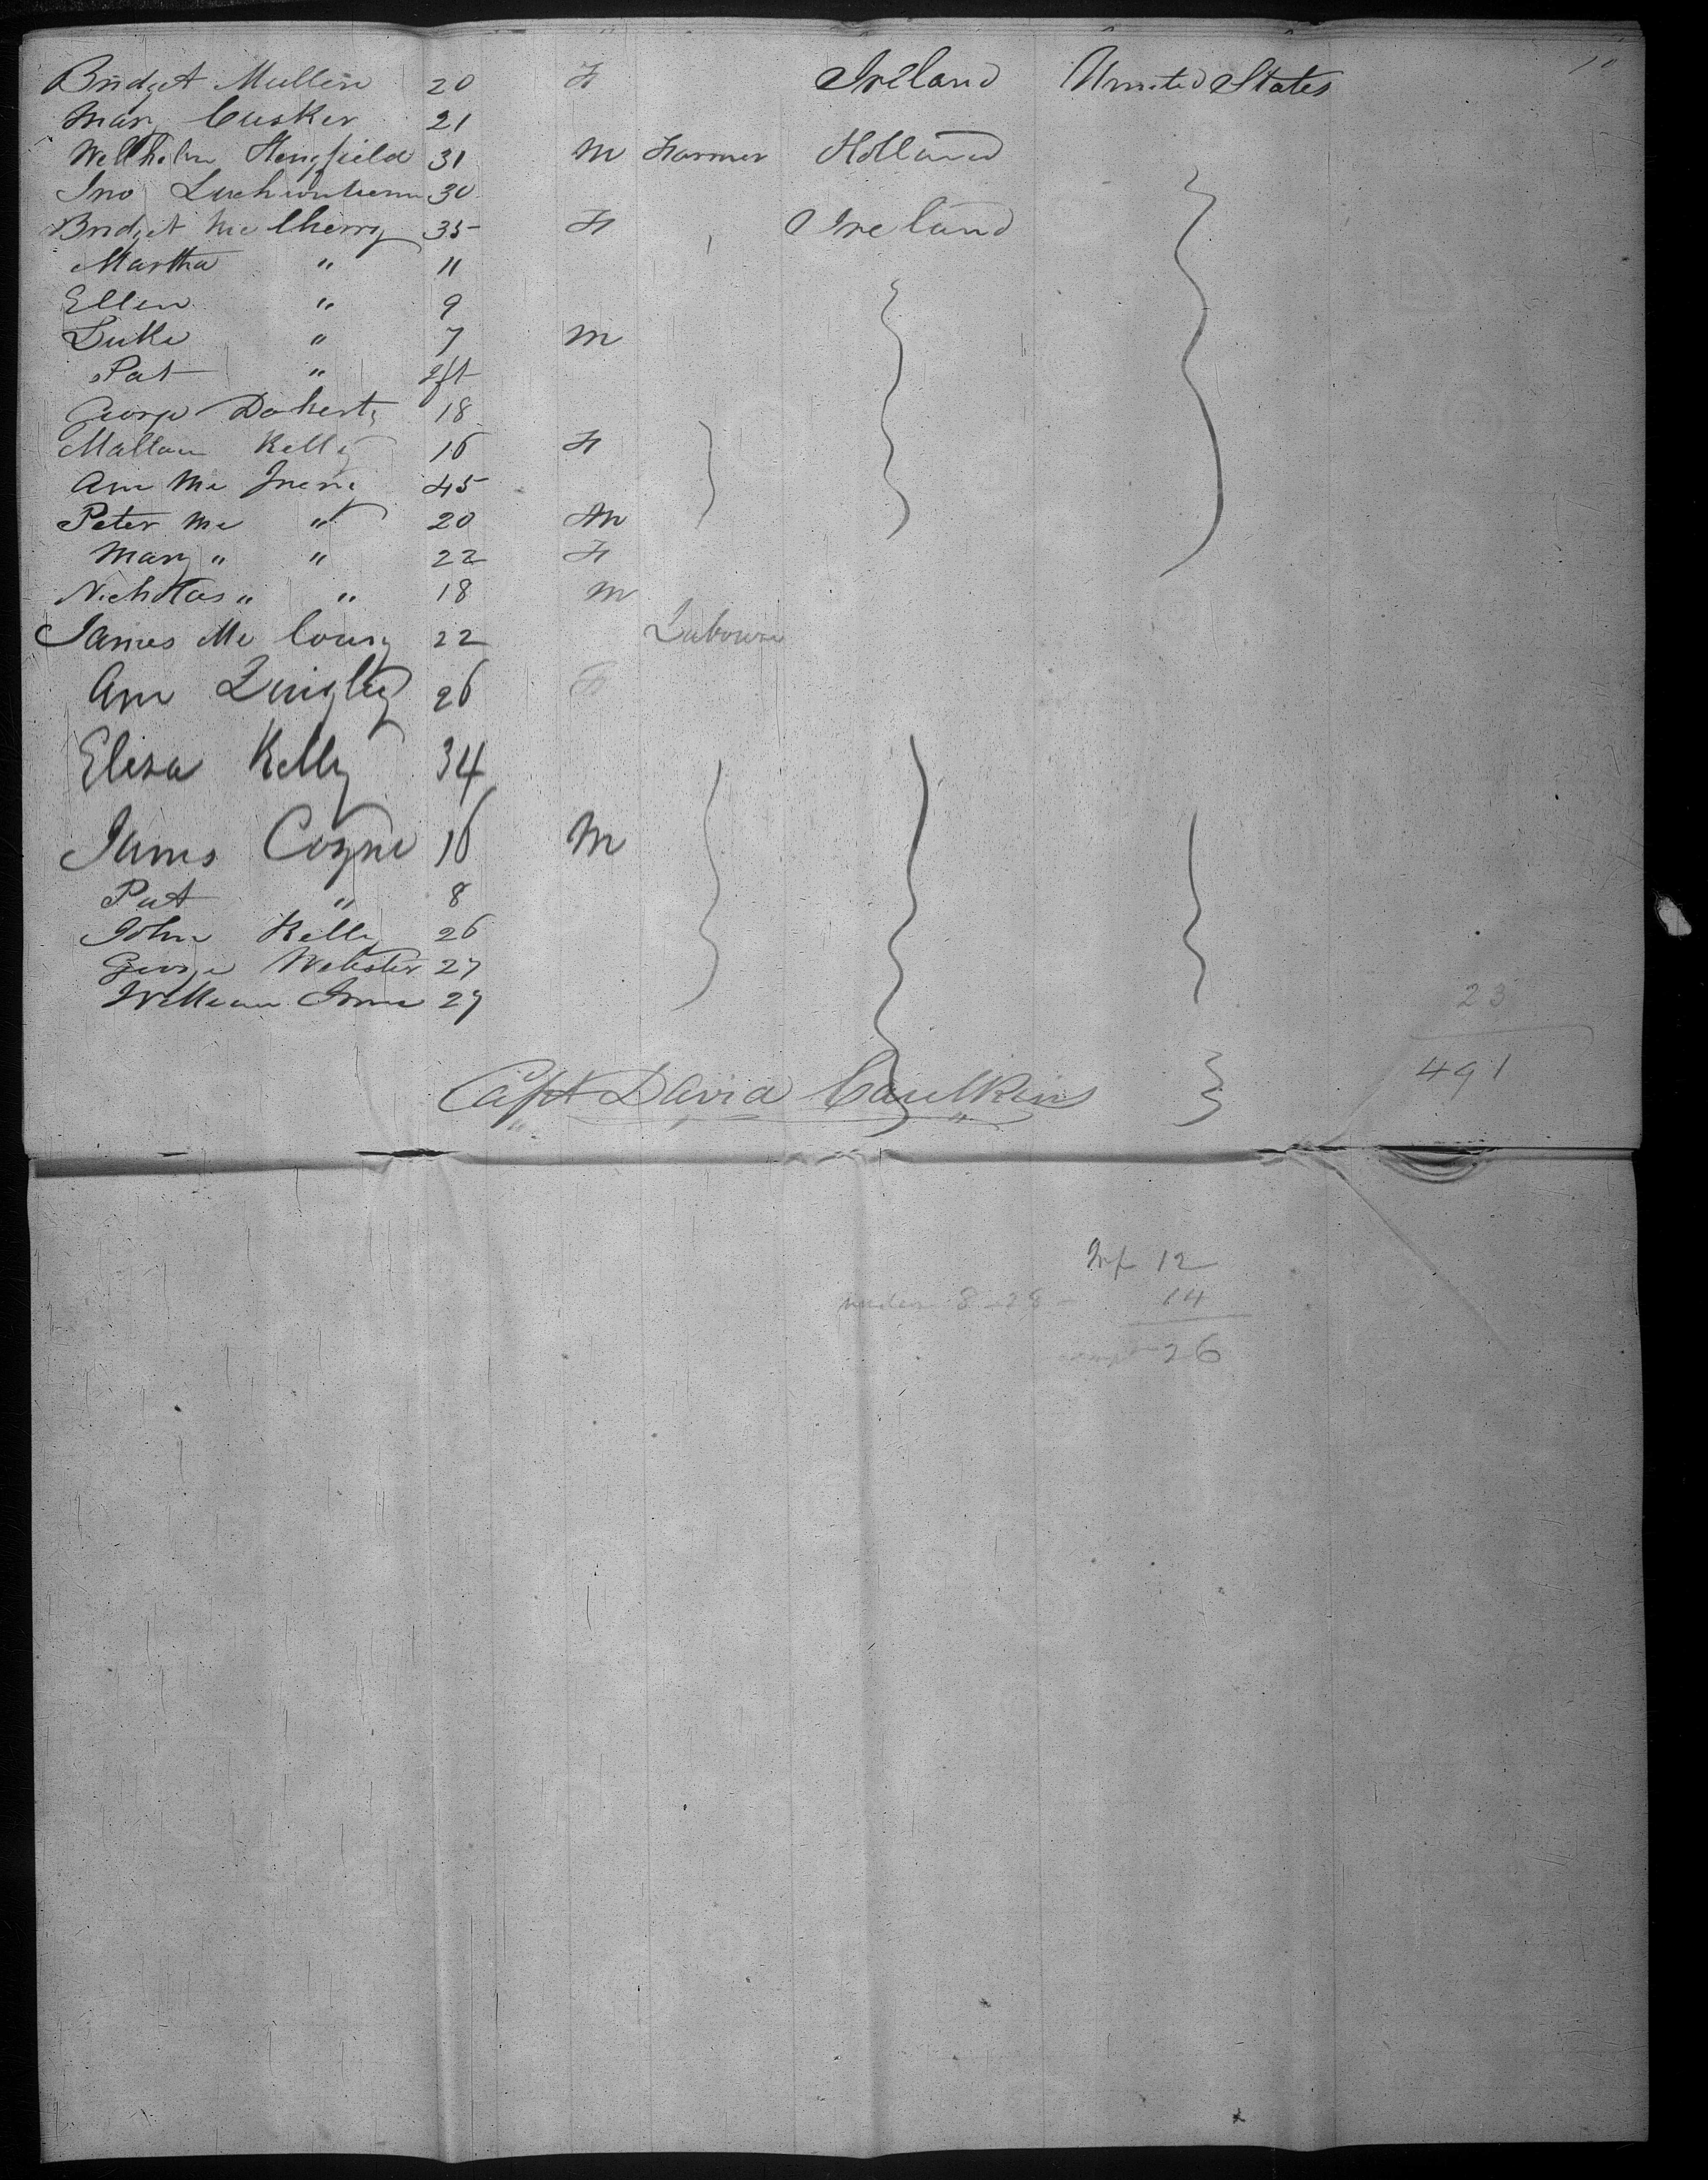 10
Bridget Mullin 20 F Ireland United States
Mary Cusker 21
Wellhelm Hengfield 31 M Farmer Holland
Jno 30
Bridget McCherry 35 F Ireland
Martha " 11
Ellen " 9
Luke " 7 M
Pat " Inft
George Doherty 18
Kelly 16 F
Ann Mc 45
Peter Mc " 20 M
Mary " " 22 F
Nicholas " " 18 M
James Mc Courg 22 Labourer
Ann Quigley 26 F
Eliza Kelly 34
James Coyne 16 M
Pat " 8
John Kelly 26
George Webster 27
William 29
23
491
Capt David Caulkins
Inf 12
under 8 - 28 - 14
26